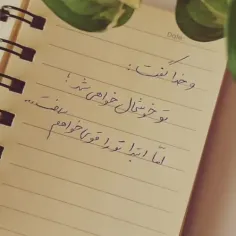 و خدا گفت :
تو خوشحال خواهی شد ؛
امّا ابتدا تو را قوی خواهم
ساخت